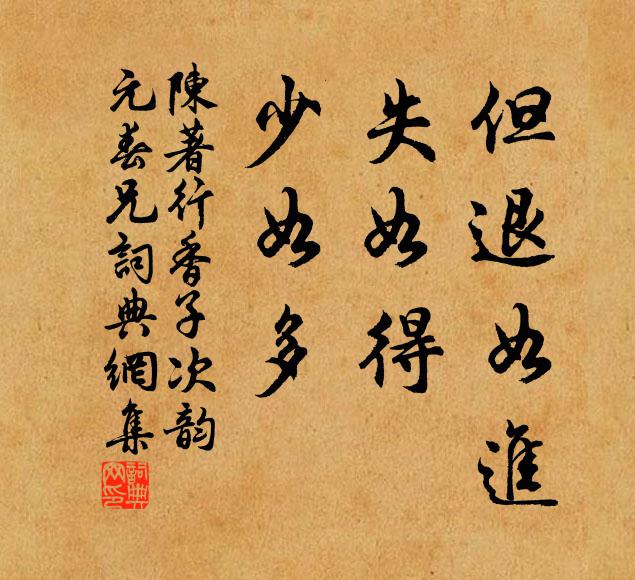 但退如進
失如得
少如多
陳著行香子次韵
元春兄詞典網集
詞典
网印